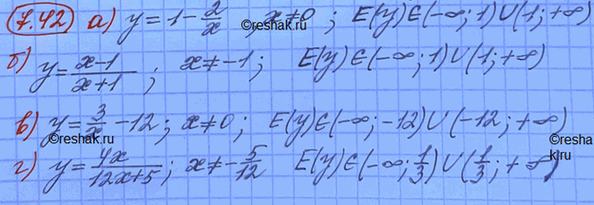 7.42 а) y = 1 - 2/x ; x ≠ 0 ; E(y) ∈ (-∞; 1) ∪ (1; +∞)
reshak.ru
б) y = (x-1)/(x+1) ; x ≠ -1 ; E(y) ∈ (-∞; 1) ∪ (1; +∞)
в) y = 3/x - 12 ; x ≠ 0 ; E(y) ∈ (-∞; -12) ∪ (-12; +∞)
reshak.ru
г) y = 4x/(12x+5) ; x ≠ -5/12 E(y) ∈ (-∞; 1/3) ∪ (1/3; +∞)
reshak.ru